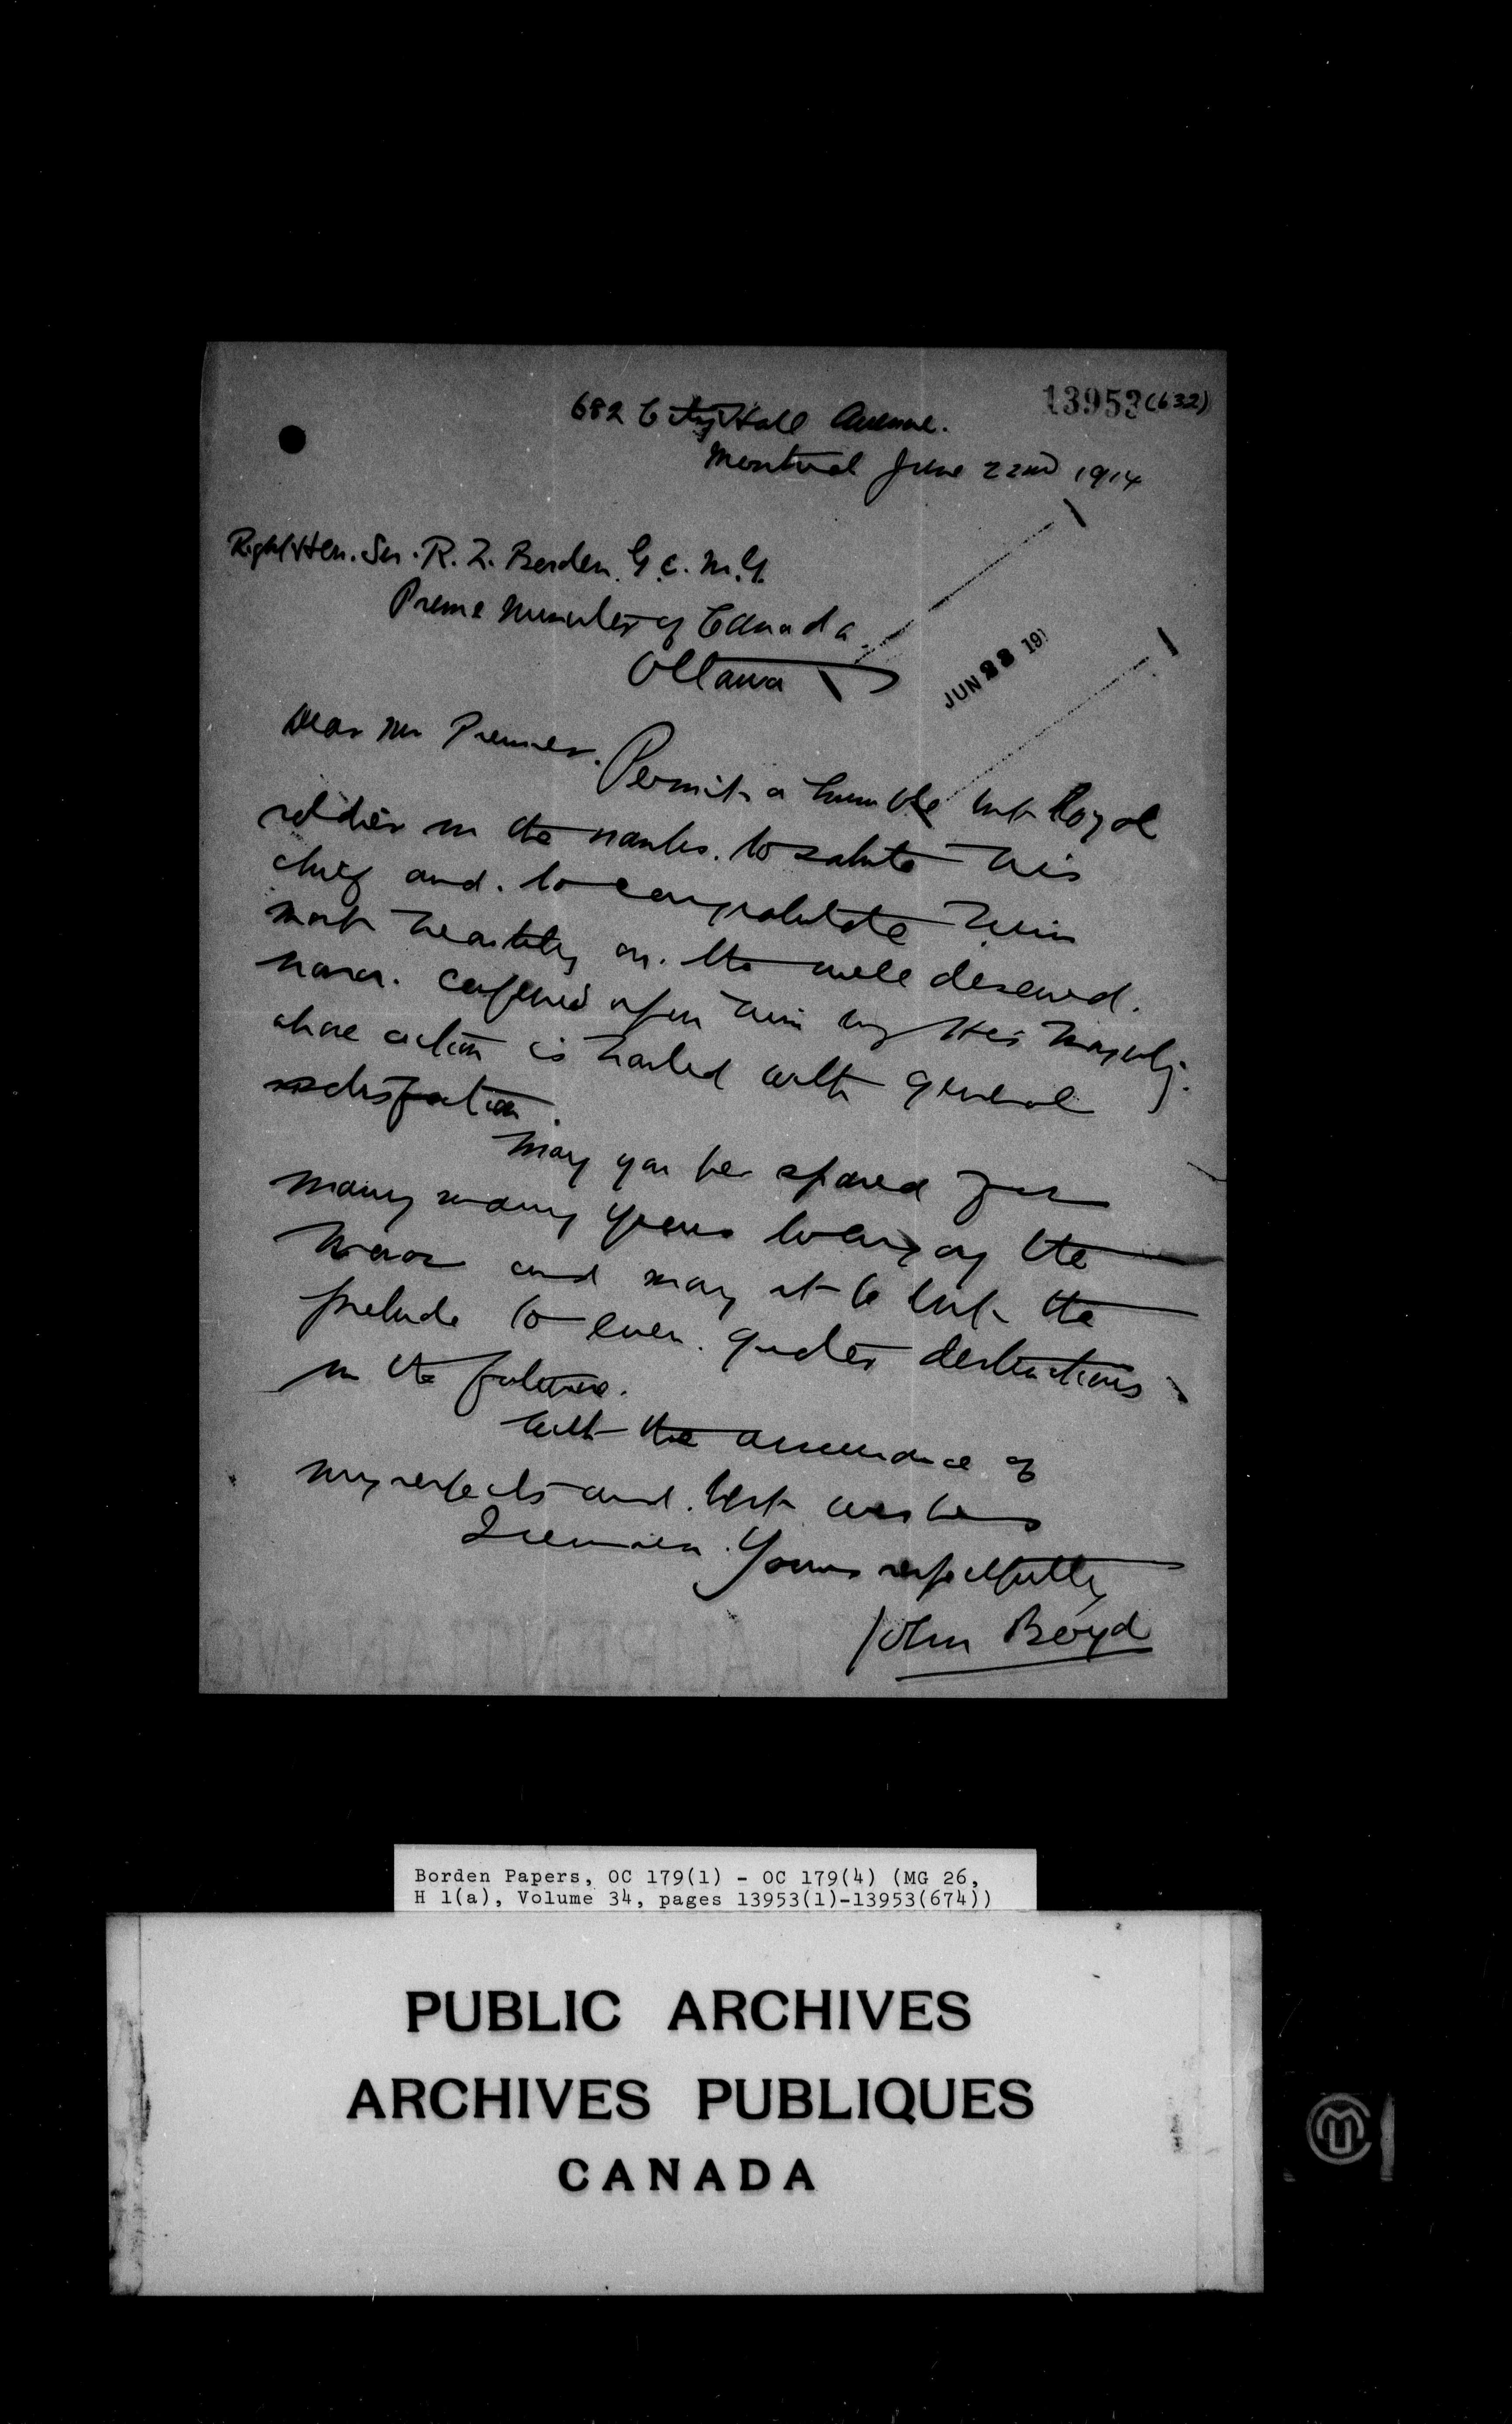 13953(632)
682 City Hall Avenue.
Montreal June 22nd 1914
Right Hon. Sir. R. L. Borden. G.C.M.G.
Prime Minister of Canada.
Ottawa
JUN 23 191
Dear Mr Premier.
Permit a humble but loyal
soldier in the ranks. to salute his
chief and. to congratulate him
most heartily on. the well deserved.
honor. conferred upon him by His Majesty.
whose action is hailed with general
satisfaction.
May you be spared for
many many years to enjoy the
honor and may it be but the
prelude to even. greater distinctions
in the future.
With the assurance of
my respects and. best wishes
I remain. Yours respectfully
John Boyd
LAURENTIAN
Borden Papers, OC 179(1) - OC 179(4) (MG 26,
H 1(a), Volume 34, pages 13953(1)-13953(674))
PUBLIC ARCHIVES
ARCHIVES PUBLIQUES
CANADA